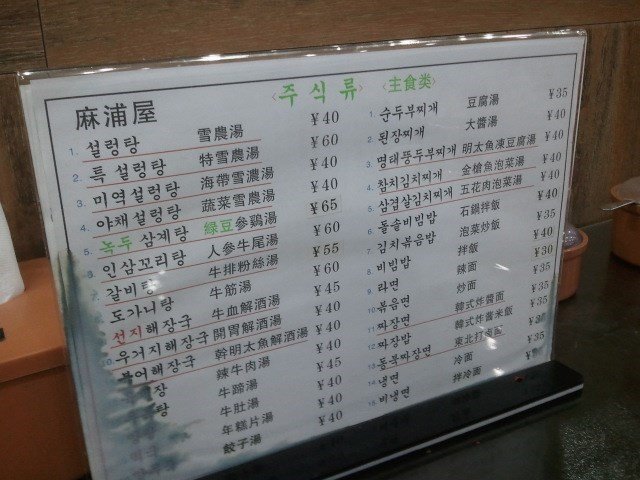 麻浦屋
〈주 식 류〉 〈主食类〉
1. 설렁탕 雪農湯 ¥40
2. 특 설렁탕 特雪農湯 ¥60
3. 미역설렁탕 海帶雪濃湯 ¥40
4. 야채설렁탕 蔬菜雪農湯 ¥40
5. 녹두 삼계탕 绿豆參鷄湯 ¥65
인삼꼬리탕 人參牛尾湯 ¥60
갈비탕 牛排粉絲湯 ¥55
도가니탕 牛筋湯 ¥60
선지해장국 牛血解酒湯 ¥45
우거지해장국 開胃解酒湯 ¥40
북어해장국 幹明太魚解酒湯 ¥40
장 辣牛肉湯 ¥40
탕 牛蹄湯 ¥45
牛肚湯 ¥40
年糕片湯 ¥40
餃子湯 ¥40
1. 순두부찌개 豆腐湯 ¥35
2. 된장찌개 大醬湯 ¥40
3. 명태통두부찌개 明太魚凍豆腐湯 ¥40
4. 참치김치찌개 金槍魚泡菜湯 ¥40
5. 삼겹살김치찌개 五花肉泡菜湯 ¥40
6. 돌솥비빔밥 石鍋拌飯 ¥40
7. 김치볶음밥 泡菜炒飯 ¥35
8. 비빔밥 拌飯 ¥40
9. 라면 辣面 ¥30
10. 볶음면 炒面 ¥35
11. 짜장면 韓式炸醬面 ¥35
12. 짜장밥 韓式炸酱米飯 ¥35
13. 동북짜장면 東北打鹵面
14. 냉면 冷面 ¥35
15. 비냉면 拌冷面